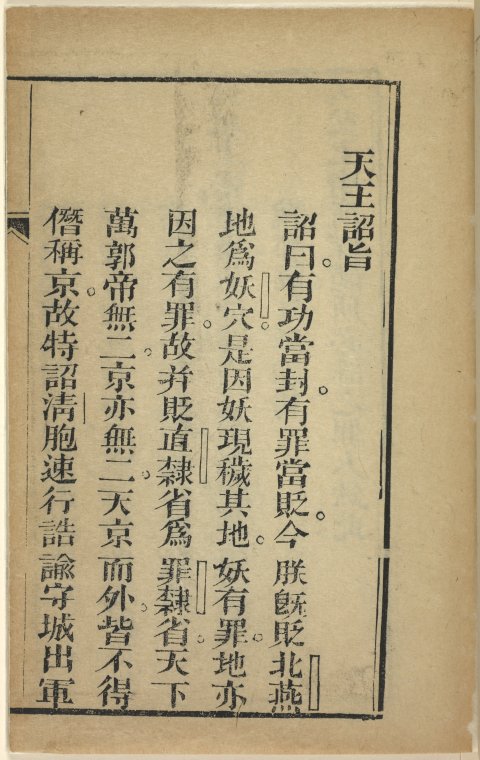 天王詔旨
詔曰。有功當封。有罪當貶。今朕旣貶北燕
地爲妖穴。是因妖現穢其地。妖有罪。地亦
因之有罪。故幷貶直隸省爲罪隸省。天下
萬郭帝無二。京亦無二。天京而外。皆不得
僭稱京。故特詔淸胞速行誥諭守城出軍